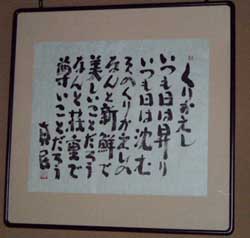 くりかえし
いつも日は昇り
いつも日は沈む
そのくりかえしの
なんと新鮮で
美しいことだろう
なんと荘重で
いことだろう
真民